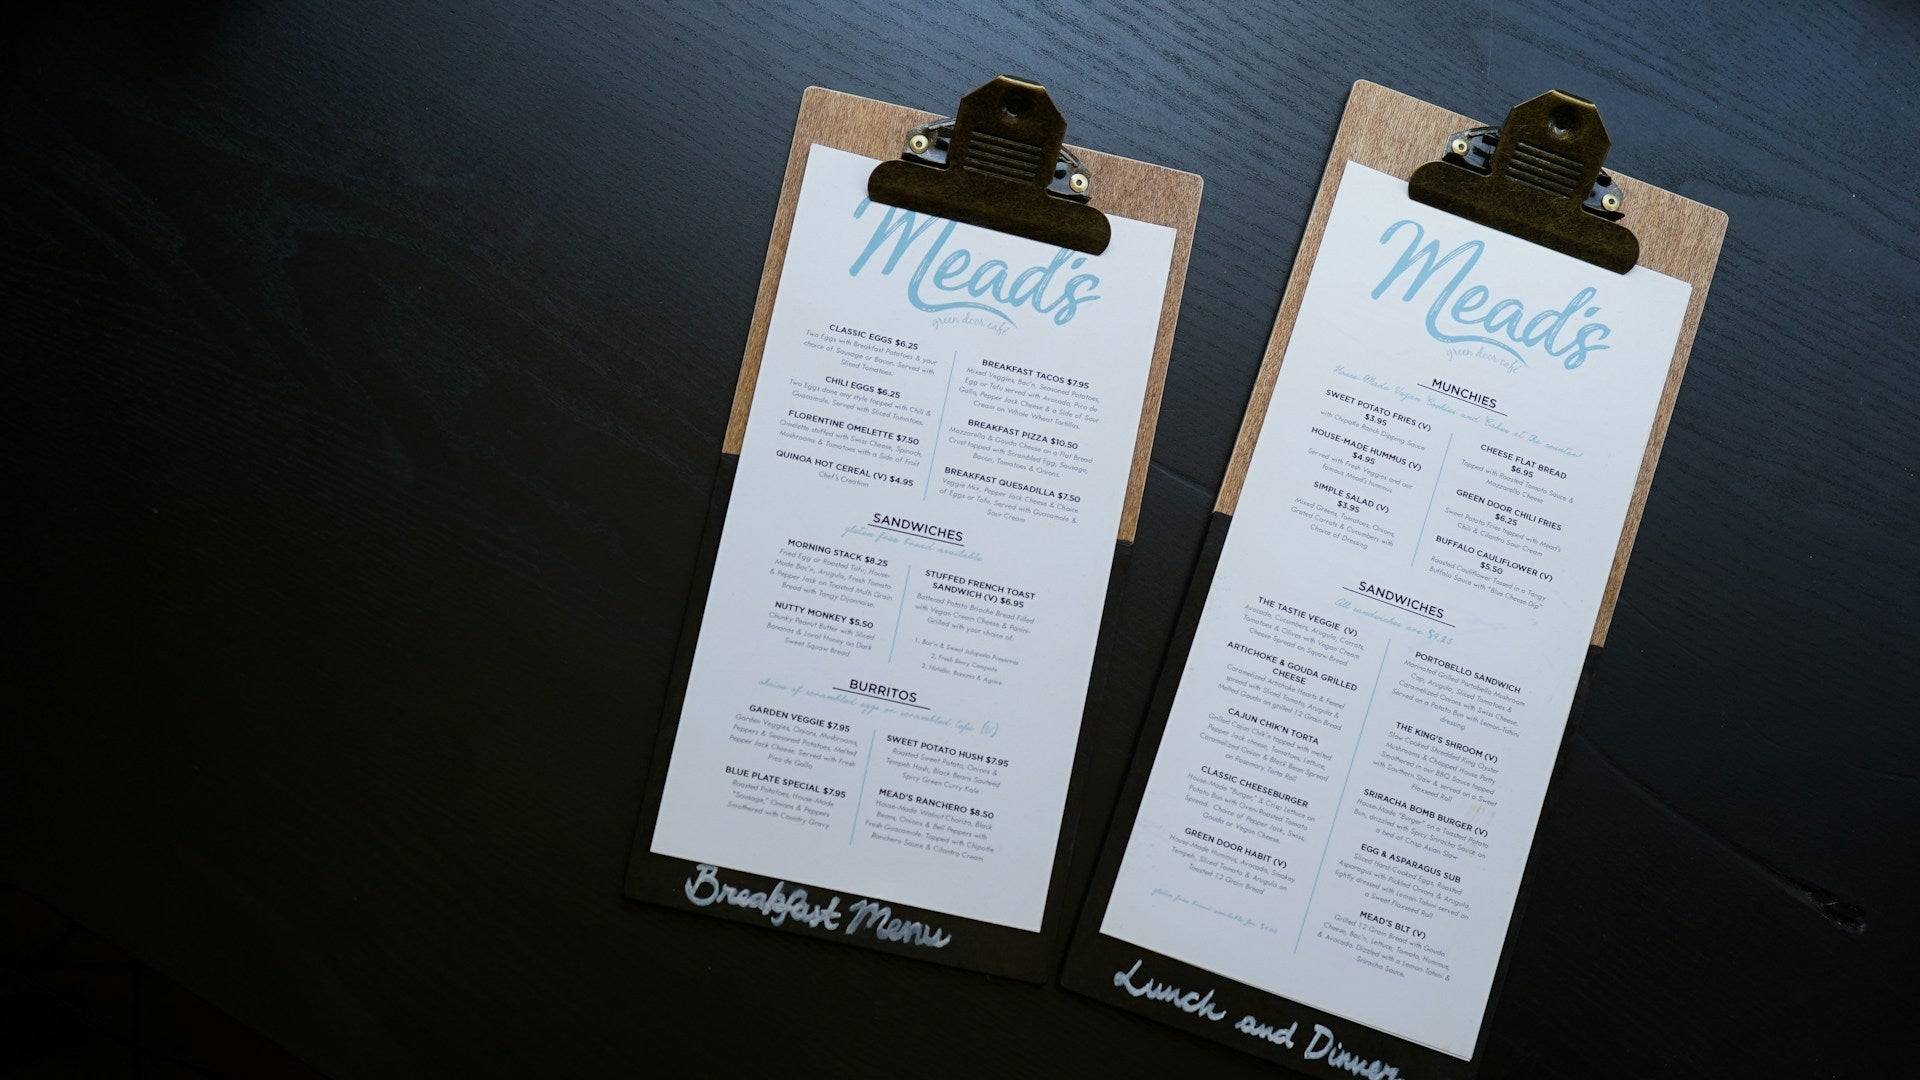 Mead's
green door café
CLASSIC EGGS $6.25
Two Eggs with Breakfast Potatoes & your
choice of Sausage or Bacon. Served with
Sliced Tomatoes.
CHILI EGGS $6.25
Two Eggs done any style topped with Chili &
Guacamole, Served with Sliced Tomatoes.
FLORENTINE OMELETTE $7.50
Omelette stuffed with Swiss Cheese, Spinach,
Mushrooms & Tomatoes with a Side of Fruit
QUINOA HOT CEREAL (V) $4.95
Chef's Creation
BREAKFAST TACOS $7.95
Mixed Veggies, Bac'n, Seasoned Potatoes,
Egg or Tofu served with Avocado, Pico de
Gallo, Pepper Jack Cheese & a Side of Sour
Cream on Whole Wheat Tortillas.
BREAKFAST PIZZA $10.50
Mozzarella & Gouda Cheese on a Flat Bread
Crust topped with Scrambled Egg, Sausage,
Bacon, Tomatoes & Onions.
BREAKFAST QUESADILLA $7.50
Veggie Mix, Pepper Jack Cheese & Choice
of Eggs or Tofu, Served with Guacamole &
Sour Cream
SANDWICHES
gluten free bread available
MORNING STACK $8.25
Fried Egg or Roasted Tofu, House-
Made Bac'n, Arugula, Fresh Tomato
& Pepper Jack on Toasted Multi Grain
Bread with Tangy Dijonnaise.
NUTTY MONKEY $5.50
Chunky Peanut Butter with Sliced
Bananas & Local Honey on Dark
Sweet Squaw Bread
STUFFED FRENCH TOAST
SANDWICH (V) $6.95
Battered Potato Brioche Bread Filled
with Vegan Cream Cheese & Panini-
Grilled with your choice of:
1. Bac'n & Sweet Jalapeño Preserves
2. Fresh Berry Compote
3. Nutella, Banana & Agave
BURRITOS
choice of scrambled eggs or scrambled tofu (V)
GARDEN VEGGIE $7.95
Garden Veggies, Onions, Mushrooms,
Peppers & Seasoned Potatoes, Melted
Pepper Jack Cheese. Served with Fresh
Pico de Gallo
BLUE PLATE SPECIAL $7.95
Roasted Potatoes, House-Made
"Sausage," Onions & Peppers
Smothered with Country Gravy
SWEET POTATO HUSH $7.95
Roasted Sweet Potato, Onions &
Tempeh Hash, Black Beans Sautéed
Spicy Green Curry Kale
MEAD'S RANCHERO $8.50
House-Made Walnut Chorizo, Black
Beans, Onions & Bell Peppers with
Fresh Guacamole. Topped with Chipotle
Ranchero Sauce & Cilantro Cream
Breakfast Menu
Mead's
green door café
MUNCHIES
House Made Vegan Cookies and Cakes at the counter!
SWEET POTATO FRIES (V)
$3.95
with Chipotle Ranch Dipping Sauce
HOUSE-MADE HUMMUS (V)
$4.95
Served with Fresh Veggies and our
famous Mead's hummus
SIMPLE SALAD (V)
$3.95
Mixed Greens, Tomatoes, Onions,
Grated Carrots & Cucumbers with
Choice of Dressing
CHEESE FLAT BREAD
$6.95
Topped with Roasted Tomato Sauce &
Mozzarella Cheese
GREEN DOOR CHILI FRIES
$6.25
Sweet Potato Fries topped with Mead's
Chili & Cilantro Sour Cream
BUFFALO CAULIFLOWER (V)
$5.50
Roasted Cauliflower Tossed in a Tangy
Buffalo Sauce with "Blue Cheese Dip"
SANDWICHES
All sandwiches are $9.25
THE TASTIE VEGGIE (V)
Avocado, Cucumbers, Arugula, Carrots,
Tomatoes & Olives with Vegan Cream
Cheese Spread on Squaw Bread
ARTICHOKE & GOUDA GRILLED
CHEESE
Caramelized Artichoke Hearts & Fennel
spread with Sliced Tomato, Arugula &
Melted Gouda on grilled 12 Grain Bread
CAJUN CHIK'N TORTA
Grilled Cajun Chik'n topped with melted
Pepper Jack cheese, Tomatoes, Lettuce,
Caramelized Onion & Black Bean Spread
on Rosemary Torta Roll
CLASSIC CHEESEBURGER
House-Made "Burger," & Crisp Lettuce on
Potato Bun with Oven-Roasted Tomato
Spread. Choice of Pepper Jack, Swiss,
Gouda or Vegan Cheese.
GREEN DOOR HABIT (V)
House-Made Hummus, Avocado, Smokey
Tempeh, Sliced Tomato & Arugula on
Toasted 12 Grain Bread
gluten free bread available for $1.00
PORTOBELLO SANDWICH
Marinated Grilled Portobello Mushroom
Cap, Arugula, Sliced Tomatoes &
Caramelized Onions with Swiss Cheese.
Served on a Potato Bun with Lemon-Tahini
dressing
THE KING'S SHROOM (V)
Slow Cooked Shredded King Oyster
Mushrooms & Chopped House Patty
Smothered in our BBQ Sauce topped
with Southern Slaw & served on a Sweet
Flaxseed Roll
SRIRACHA BOMB BURGER (V)
House-Made "Burger" on a Toasted Potato
Bun, drizzled with Spicy Sriracha Sauce on
a bed of Crisp Asian Slaw
EGG & ASPARAGUS SUB
Sliced Hard-Cooked Eggs, Roasted
Asparagus with Pickled Onions & Arugula,
lightly dressed with Lemon-Tahini served on
a Sweet Flaxseed Roll
MEAD'S BLT (V)
Grilled 12 Grain Bread with Gouda
Cheese, Bac'n, Lettuce, Tomato, Hummus,
& Avocado. Dizzled with a Lemon-Tahini &
Sriracha Sauce.
Lunch and Dinner